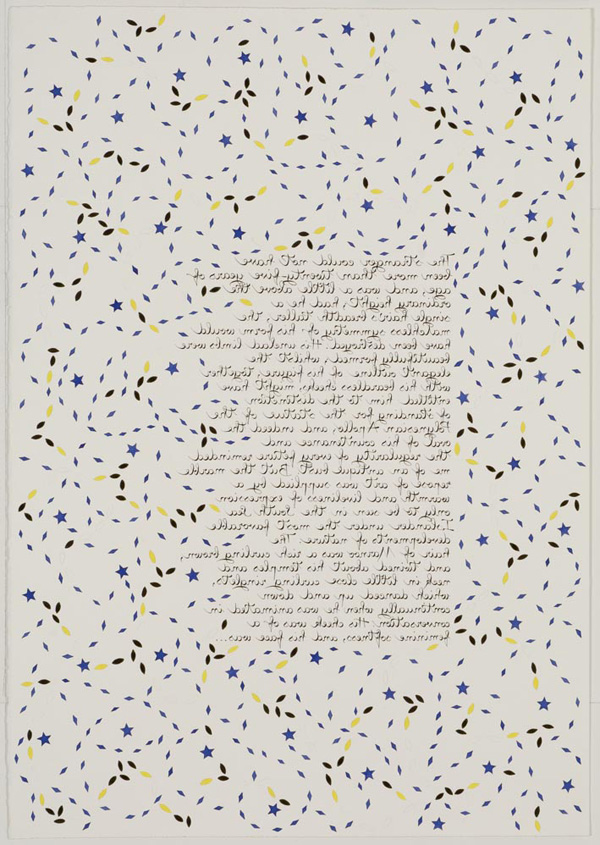 The stranger could not have
been more than twenty-five years of
age, and was a little above the
ordinary height; had he a
single hair's breadth taller, the
matchless symmetry of his form would
have been destroyed. His unclad limbs were
beautifully formed; whilst the
elegant outline of his figure, together
with his beardless cheeks, might have
entitled him to the distinction
of standing for the statue of the
Polynesian Apollo; and indeed the
oval of his countenance and
the regularity of every feature reminded
me of an antique bust. But the marble
repose of art was supplied by a
warmth and liveliness of expression
only to be seen in the South Sea
Islander under the most favorable
developements of nature. The
hair of Marnoo was a rich curling brown,
and twined about his temples and
neck in little close curling ringlets,
which danced up and down
continually when he was animated in
conversation. His cheek was of a
feminine softness, and his face was...